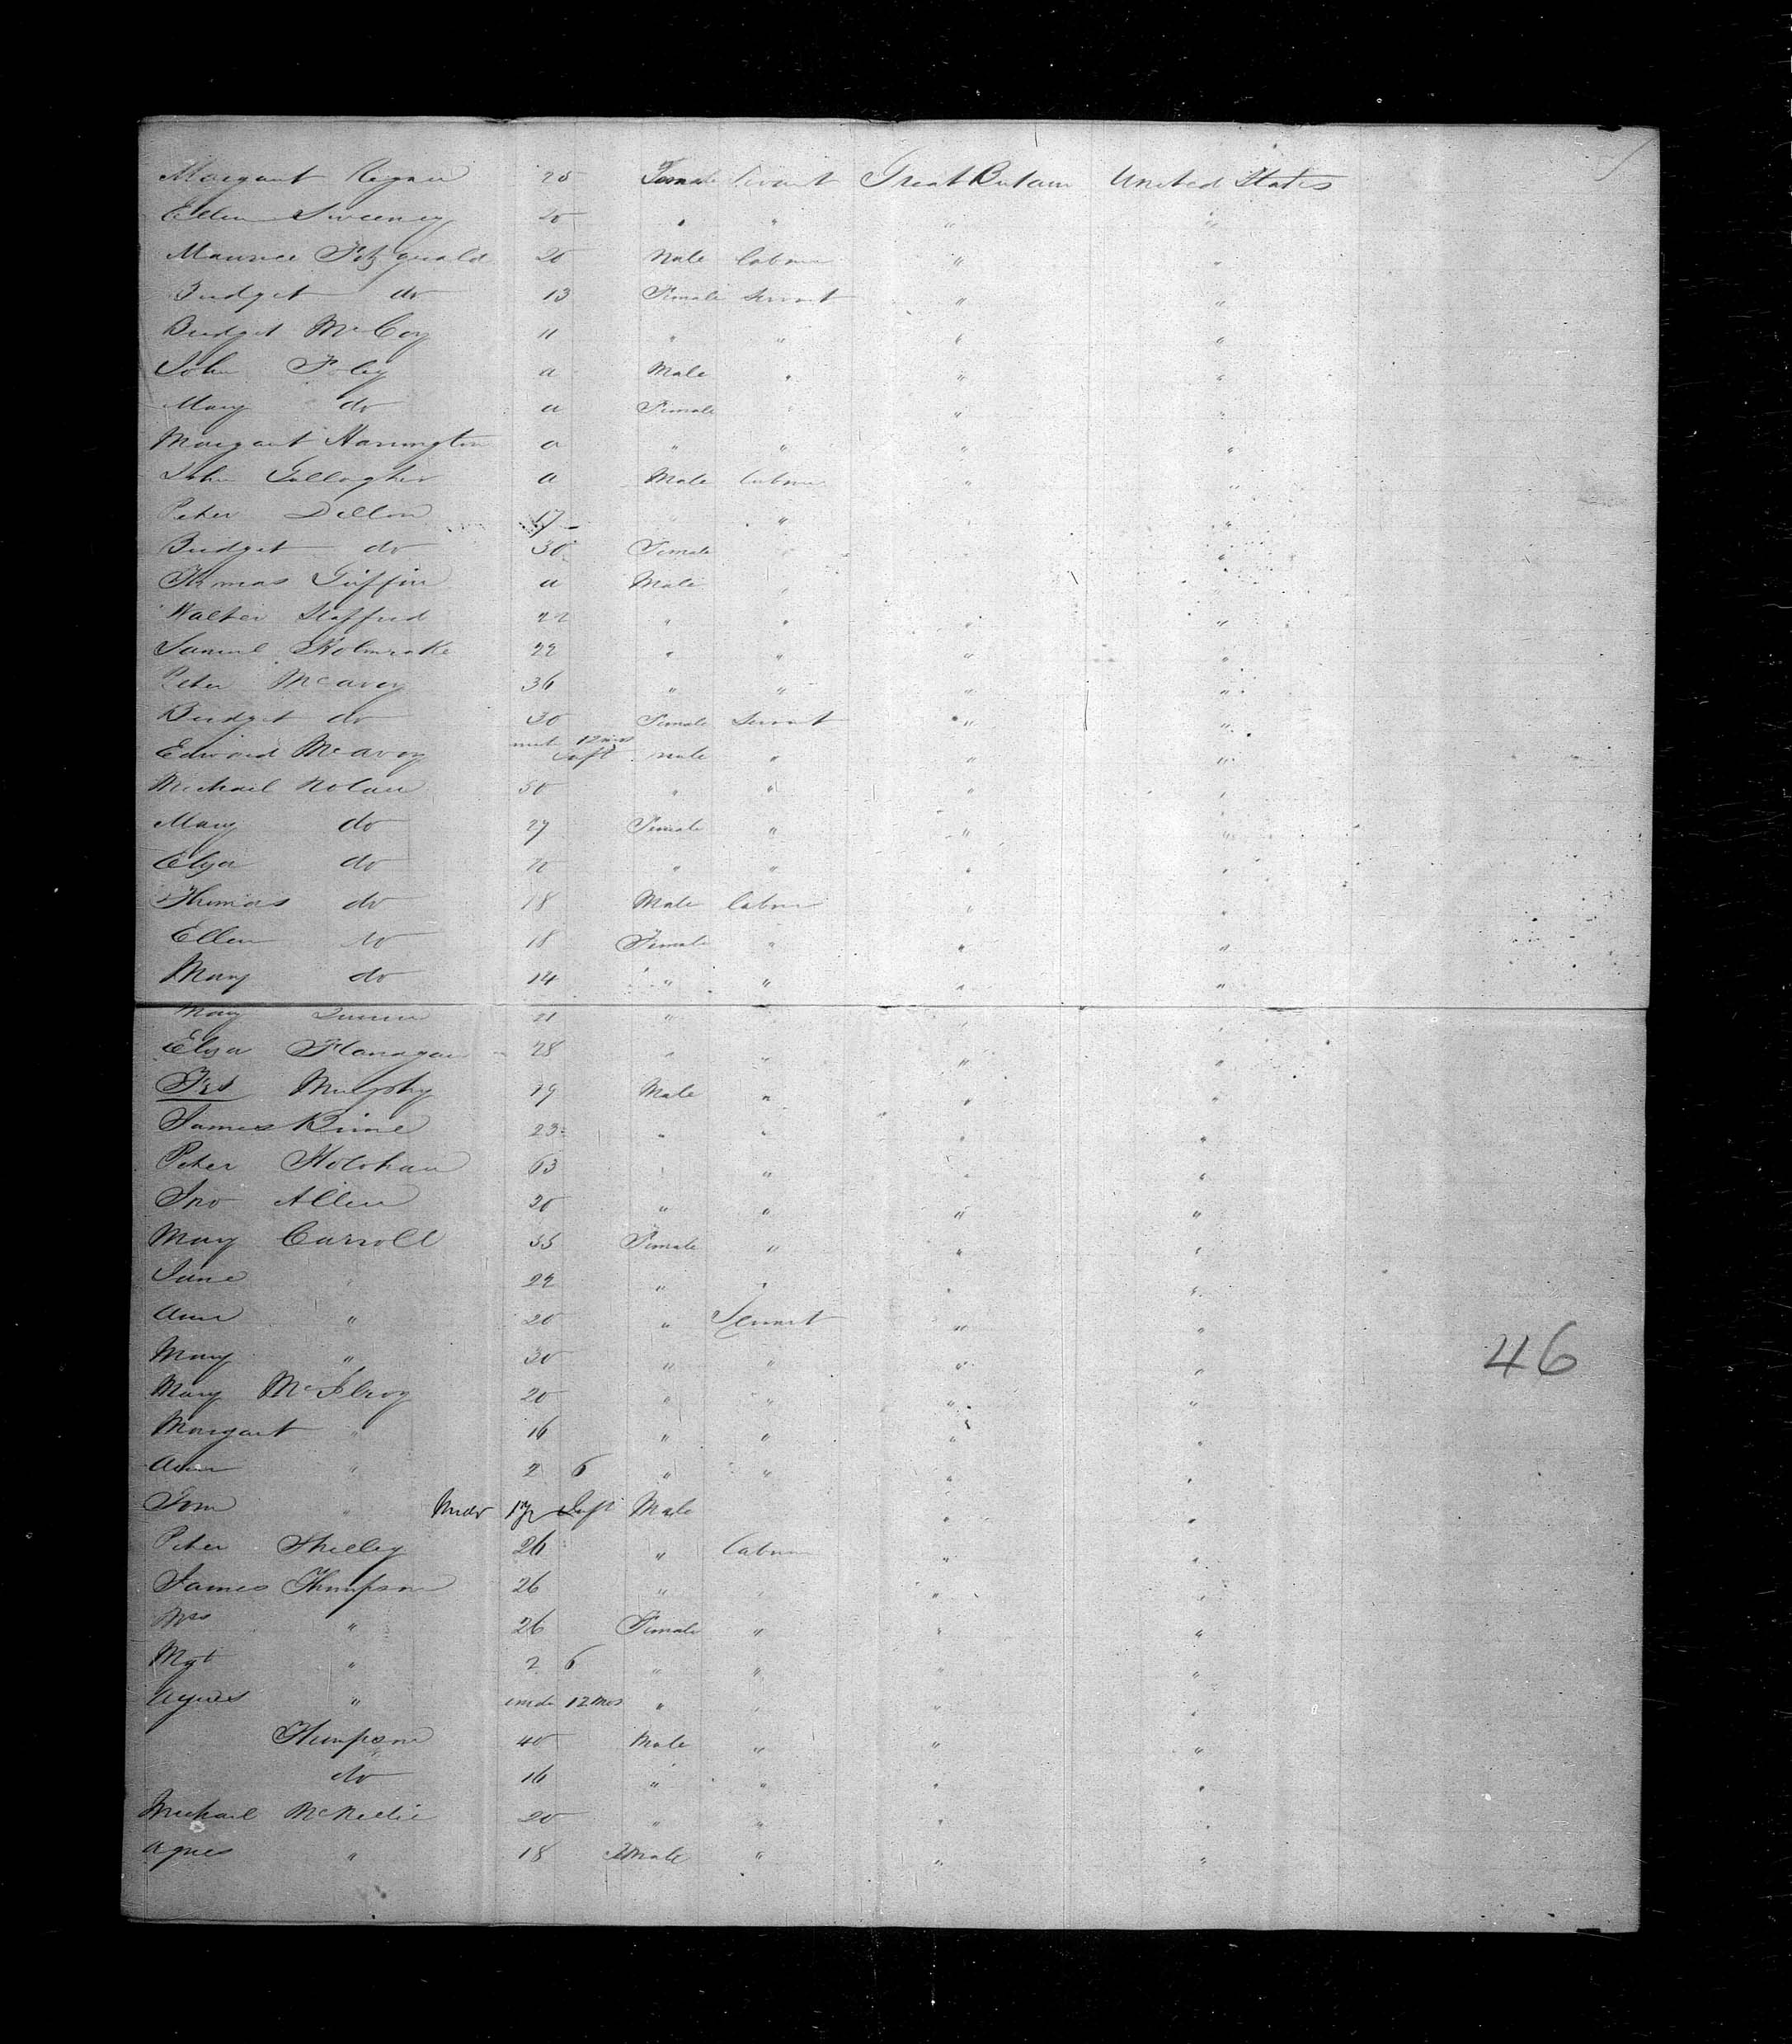 Margaret 20 Female Servant Great Britain United States
Ellen Sweeney 20 " " " "
Maurice Fitzgerald 20 Male Labourer " "
Bridget do 13 Female Servant " "
Bridget McCoy 11 " " " "
John Foley a Male " " "
Mary do a Female " " "
Margaret Harrington a " " " "
John Gallagher a Male Labourer " "
Peter Dillon 17 " " " "
Bridget do 30 Female " " "
Thomas Griffin a Male " " "
Walter Stafford 22 " " " "
Samuel 22 " " " "
Peter McAvoy 36 " " " "
Bridget do 30 Female Servant " "
Edward McAvoy 12 mos Inft male " " "
Michael Nolan 50 " " " "
Mary do 27 Female " " "
Eliza do " " " "
Thomas do 18 Male Labourer " "
Ellen do 18 Female " " "
Mary do 14 " " " "
Mary 21 " " " "
Eliza Flanagan 28 " " " "
Murphy 19 Male " " "
James 23 " " " "
Peter Holohan 63 " " " "
Jno Allen 20 " " " "
Mary Carroll 35 Female " " "
Jane " 22 " " " "
Ann " 20 " Servant " "
Mary " 30 " " " "
46
Mary McIlroy 20 " " " "
Margaret " 16 " " " "
Ann " 2 6 " " " "
Tom " Under 1 yr Inft Male " "
Peter Shelley 26 " Labourer " "
James Thompson 26 " " " "
Mrs " 26 Female " " "
Mgt " 2 6 " " " "
Agnes " under 12 mos " " " "
Thompson 40 Male " " "
do 16 " " " "
Michael 20 " " " "
Agnes " 18 Female " " "